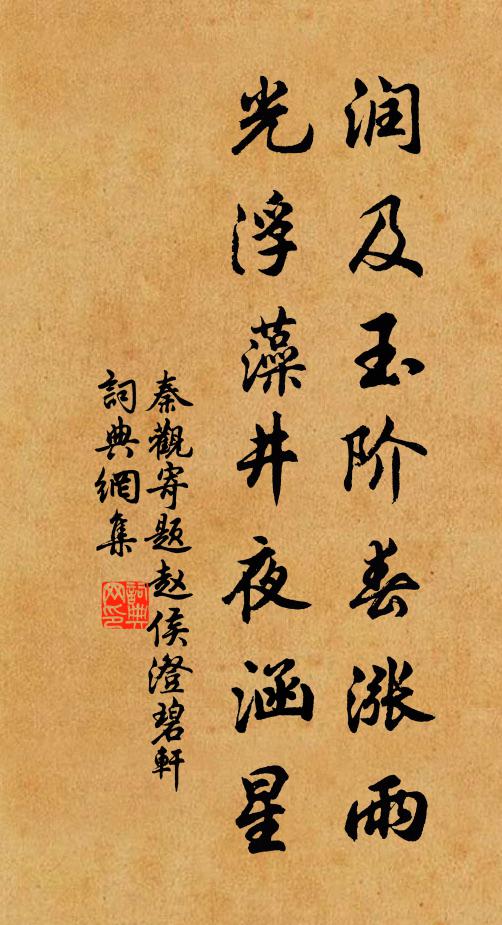 润及玉阶春涨雨
光浮藻井夜涵星
秦觀寄题赵侯澄碧軒
詞典網集
詞典网印